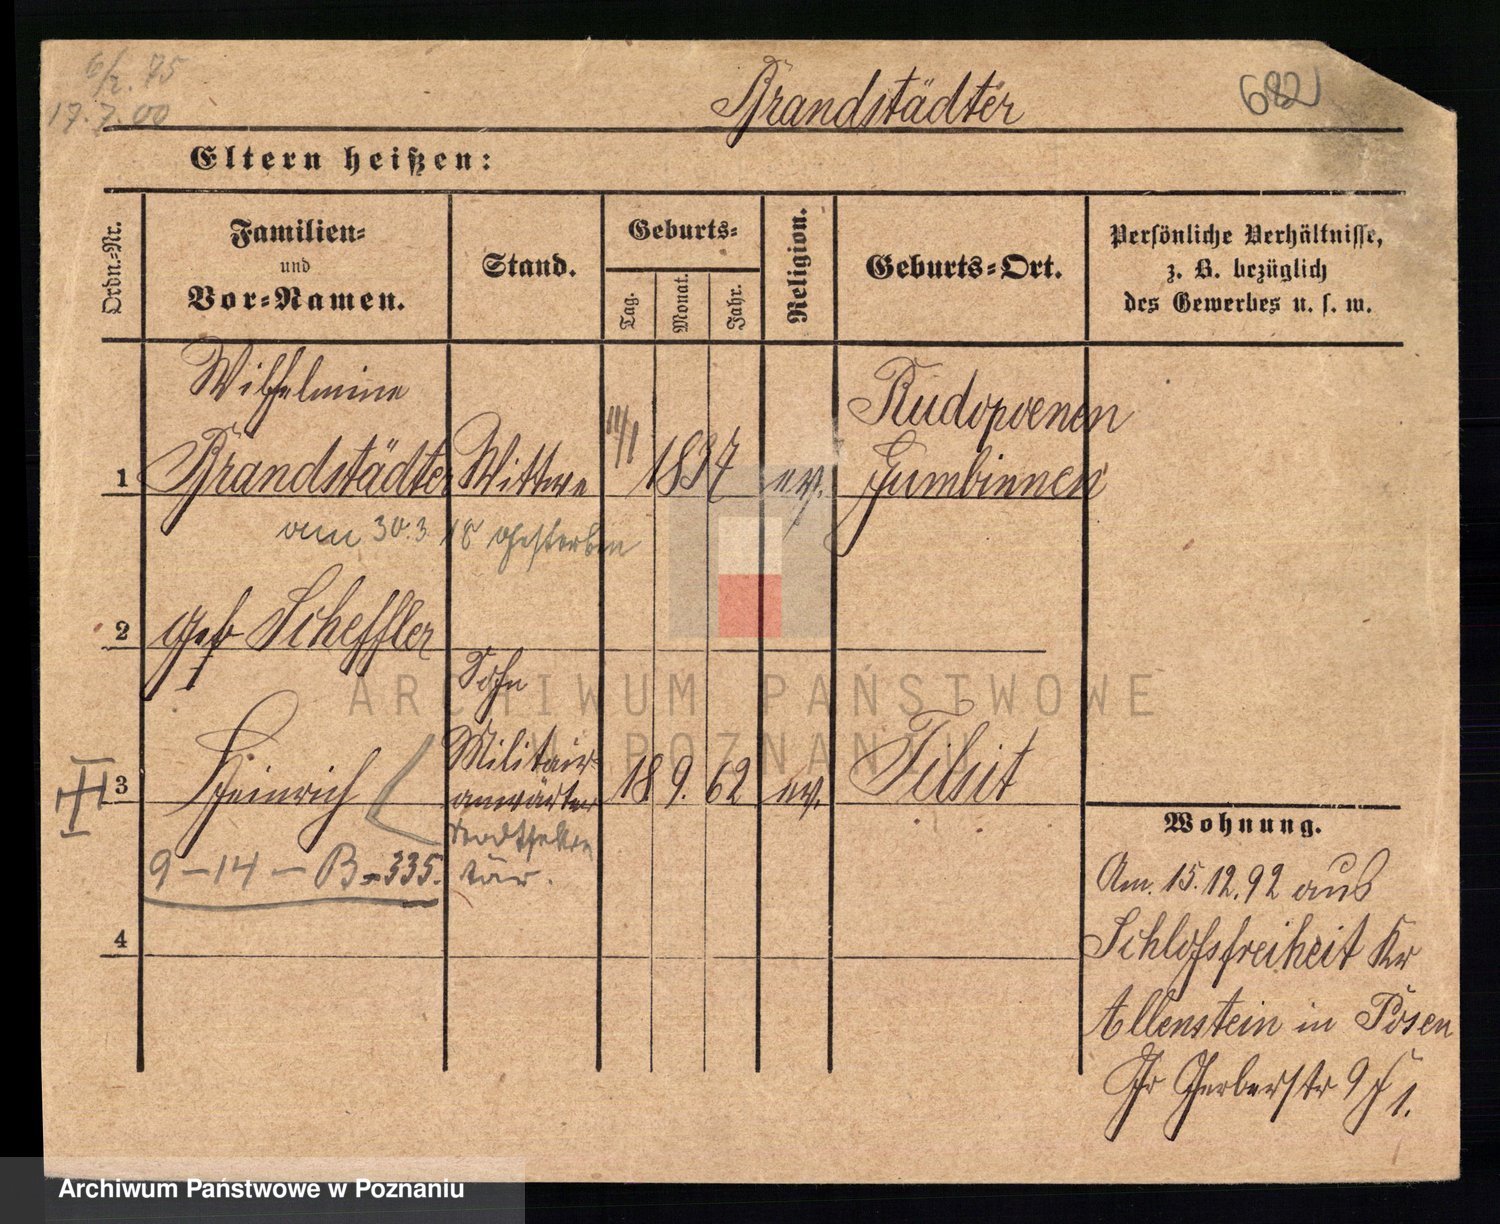 6/2. 75
17.7.00
Brandstädter
682
Eltern heißen:
Ordn.-Nr.
Familien-
und
Vor-Namen.
Stand.
Geburts-
Tag.
Monat.
Jahr.
Religion.
Geburts-Ort.
Persönliche Verhältnisse,
z. B. bezüglich
des Gewerbes u. s. w.
Wilhelmine
1 Brandstädter Wittwe 11/1 1837 ev. Rudopoenen
Gumbinnen
am 30.3.18 gestorben
2 geb Scheffler
3 Heinrich
Sohn
Militair-
anwärter
18 9. 62 ev. Tilsit
Stadtsekre
tär.
III
9-14-B-335.
4
Wohnung.
Am. 15.12.92 aus
Schloßfreiheit Kr
Allenstein in Posen
Gr Gerberstr 9 1.
ARCHIWUM PAŃSTWOWE
W POZNANIU
Archiwum Państwowe w Poznaniu